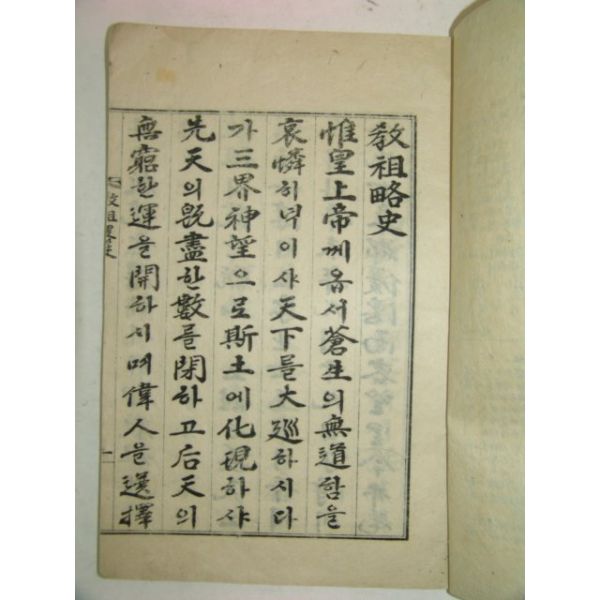 敎祖略史
惟皇上帝께옵서蒼生의無道함을
哀憐히녁이샤天下를大巡하시다
가三界神聖으로斯土에化現하샤
先天의旣盡한數를閉하고后天의
無窮한運을開하시며偉人을選擇
敎祖略史
一